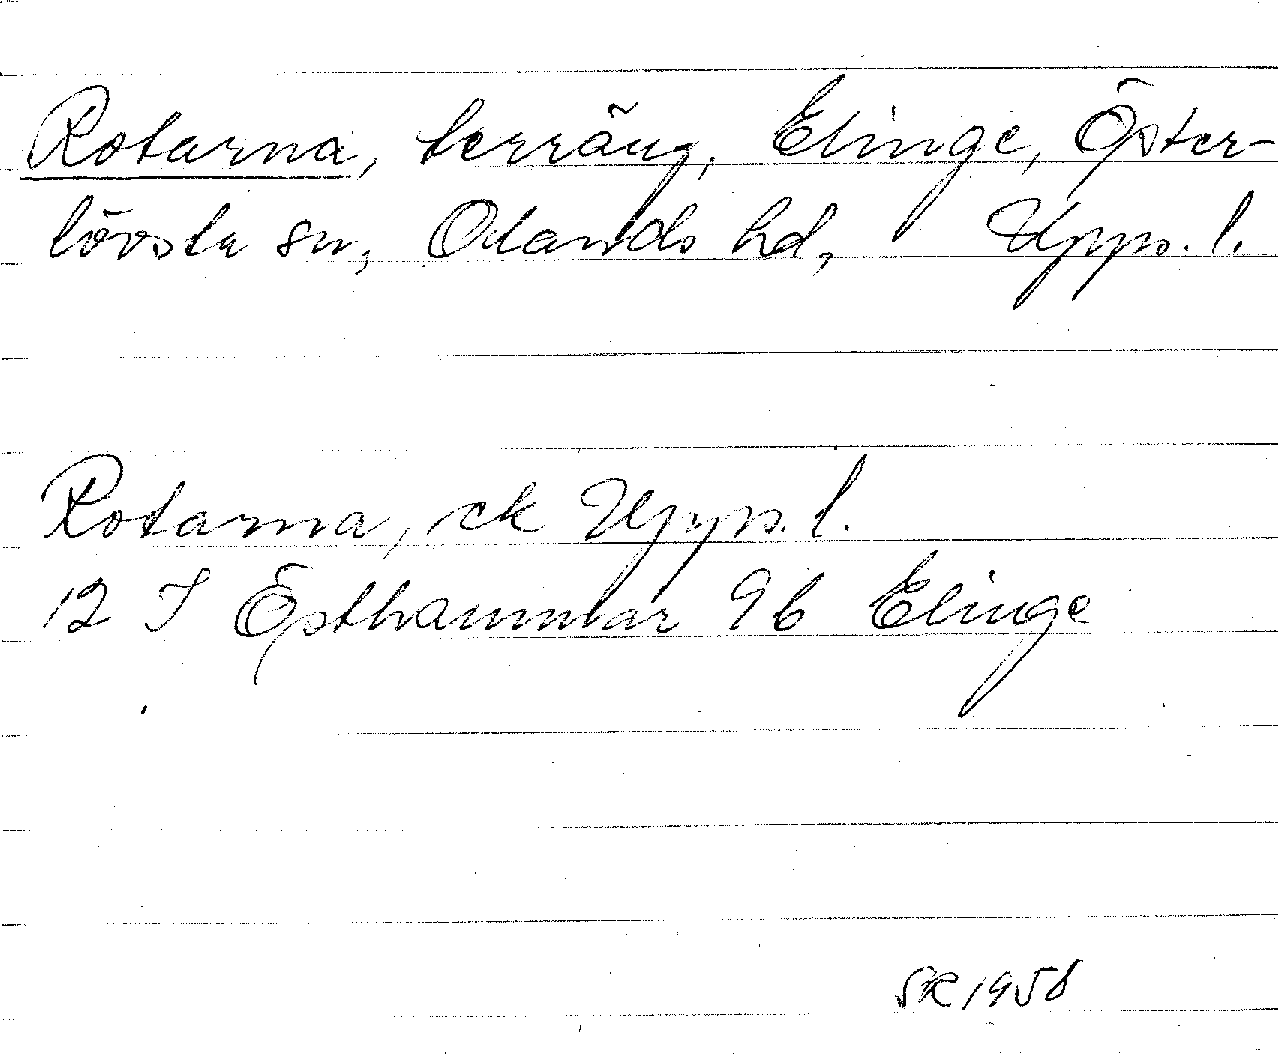 Rotarna, terräng, Elinge, Öster-
lövsta sn, Olands hd, Upps. l.
Rotarna, ek Upps. l.
12 I Östhammar 9b Elinge
SR 1956